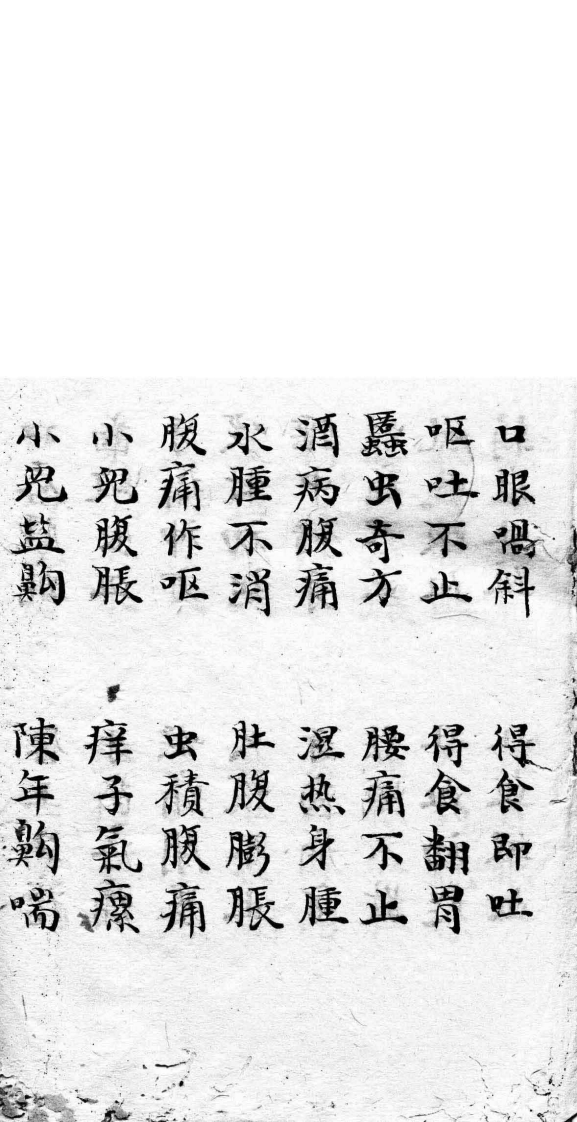 口眼喎斜 得食即吐
呕吐不止 得食翻胃
虫奇方 腰痛不止
酒病腹痛 湿热身腫
水腫不消 肚腹膨脹
腹痛作呕 虫積腹痛
小児腹脹 痒子氣瘰
小児盐齁 陳年齁喘